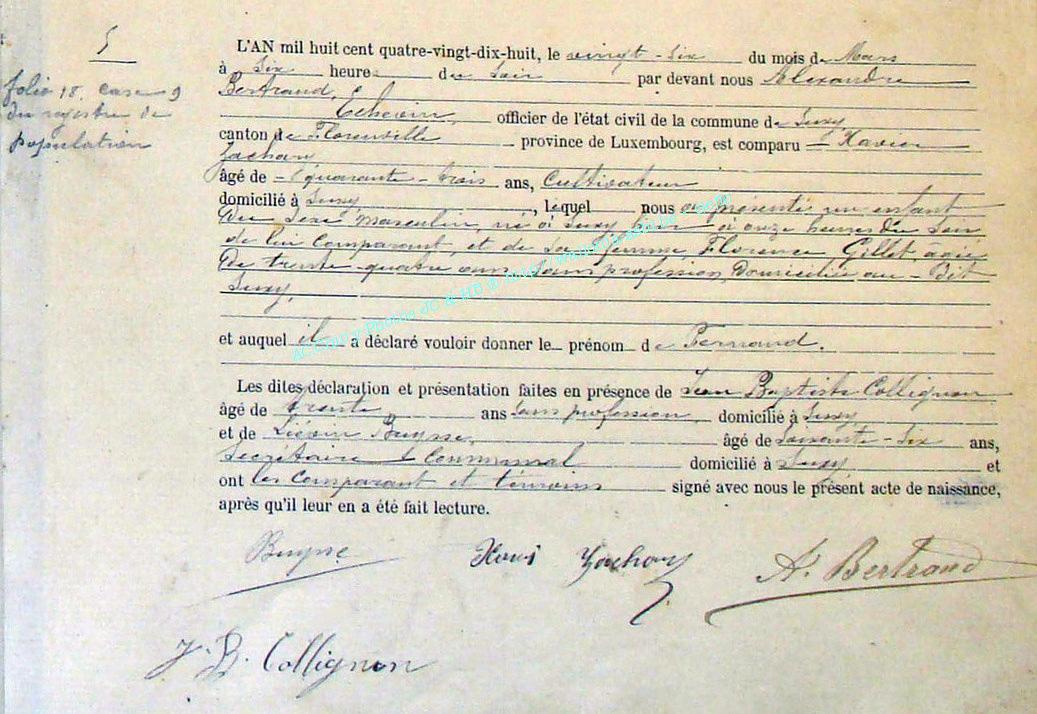 5
folio 18. case 9
du registre de
population
L'AN mil huit cent quatre-vingt-dix-huit, le vingt-six du mois de Mars
à six heures du soir par devant nous Alexandre
Bertrand,
Echevin, officier de l'état civil de la commune de Suxy
canton de Florenville province de Luxembourg, est comparu Xavier
Zachary
âgé de quarante-trois ans, Cultivateur
domicilié à Suxy, lequel nous a présenté un enfant
du sexe masculin, né à Suxy à onze heures du
de lui comparant, et de sa femme, Florence Gillet, âgée
de trente-quatre ans, sans profession, domiciliée au-dit
Suxy,
et auquel il a déclaré vouloir donner le prénom de Fernand.
Les dites déclaration et présentation faites en présence de Jean Baptiste Collignon
âgé de trente ans sans profession, domicilié à Suxy
et de Liévin Buysse, âgé de soixante-six ans,
Secrétaire Communal domicilié à Suxy et
ont les comparant et témoins signé avec nous le présent acte de naissance,
après qu'il leur en a été fait lecture.
Buysse Zachary A. Bertrand
J. B. Collignon